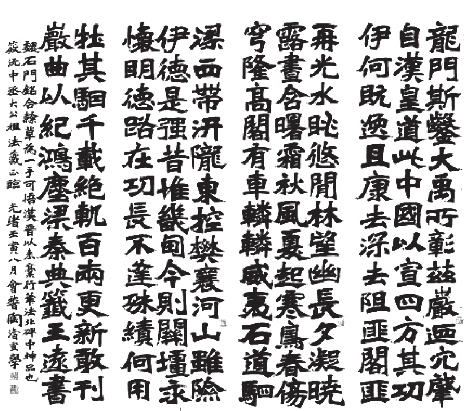 龍門斯鑿大禹所彰茲巖迺穴肇
自漢皇道此中國以宣四方其功
伊何既逸且康去深去阻匪閣匪
再光水眺悠閒林望幽長夕凝曉
露晝含曙霜秋風夏起寒鳥春傷
穹隆高閣有車轔轔威夷石道駟
梁西帶汧隴東控樊襄河山雖險
伊德是强昔惟畿甸今則關壃永
懷明德路在功長不逢殊績何用
牡其駰千載絕軌百兩更新敢刊
巖曲以紀鴻塵梁秦典籤王遠書
魏石門銘合隸草為一手可悟漢晉以來篆行筆法北碑中神品也
中丞大公祖法鑒正臨 光緒壬寅八月會稽陶濬宣學